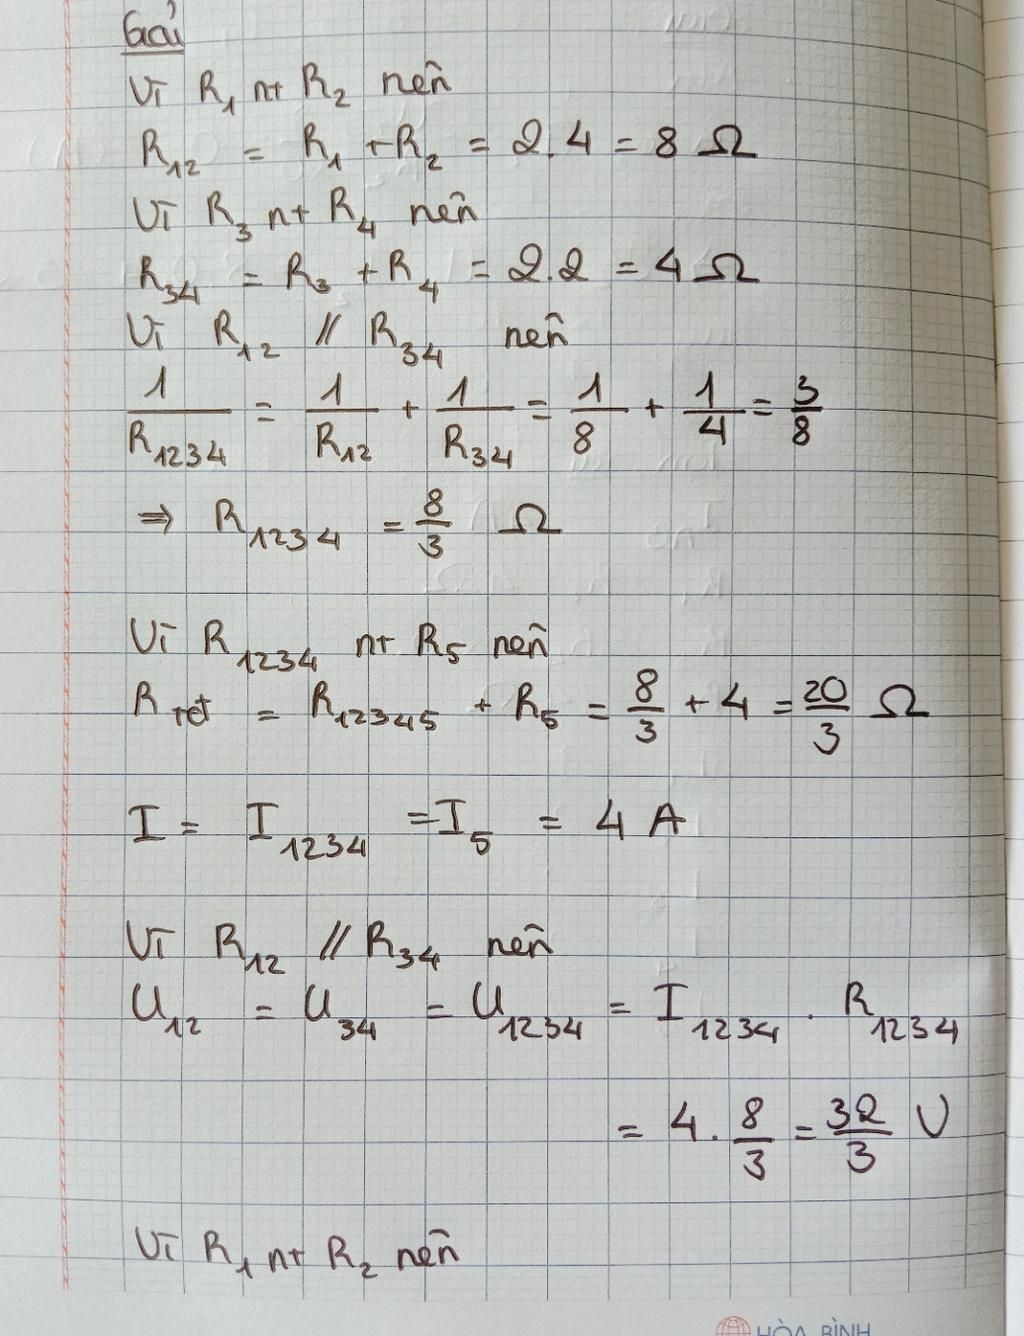 Giải
Vì R₁ nt R₂ nên
R₁₂ = R₁ + R₂ = 2.4 = 8 Ω
Vì R₃ nt R₄ nên
R₃₄ = R₃ + R₄ = 2.2 = 4 Ω
Vì R₁₂ // R₃₄ nên
1/R₁₂₃₄ = 1/R₁₂ + 1/R₃₄ = 1/8 + 1/4 = 3/8
⇒ R₁₂₃₄ = 8/3 Ω
Vì R₁₂₃₄ nt R₅ nên
R_tđ = R₁₂₃₄₅ + R₅ = 8/3 + 4 = 20/3 Ω
I = I₁₂₃₄ = I₅ = 4 A
Vì R₁₂ // R₃₄ nên
U₁₂ = U₃₄ = U₁₂₃₄ = I₁₂₃₄ . R₁₂₃₄
= 4 . 8/3 = 32/3 V
Vì R₁ nt R₂ nên
HÒA BÌNH